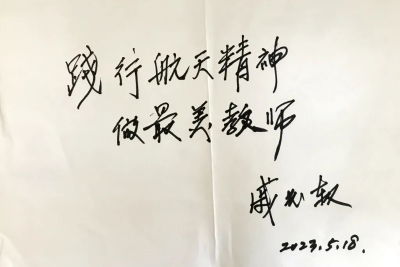 践行航天精神
做最美教师
戚发轫
2023.5.18.